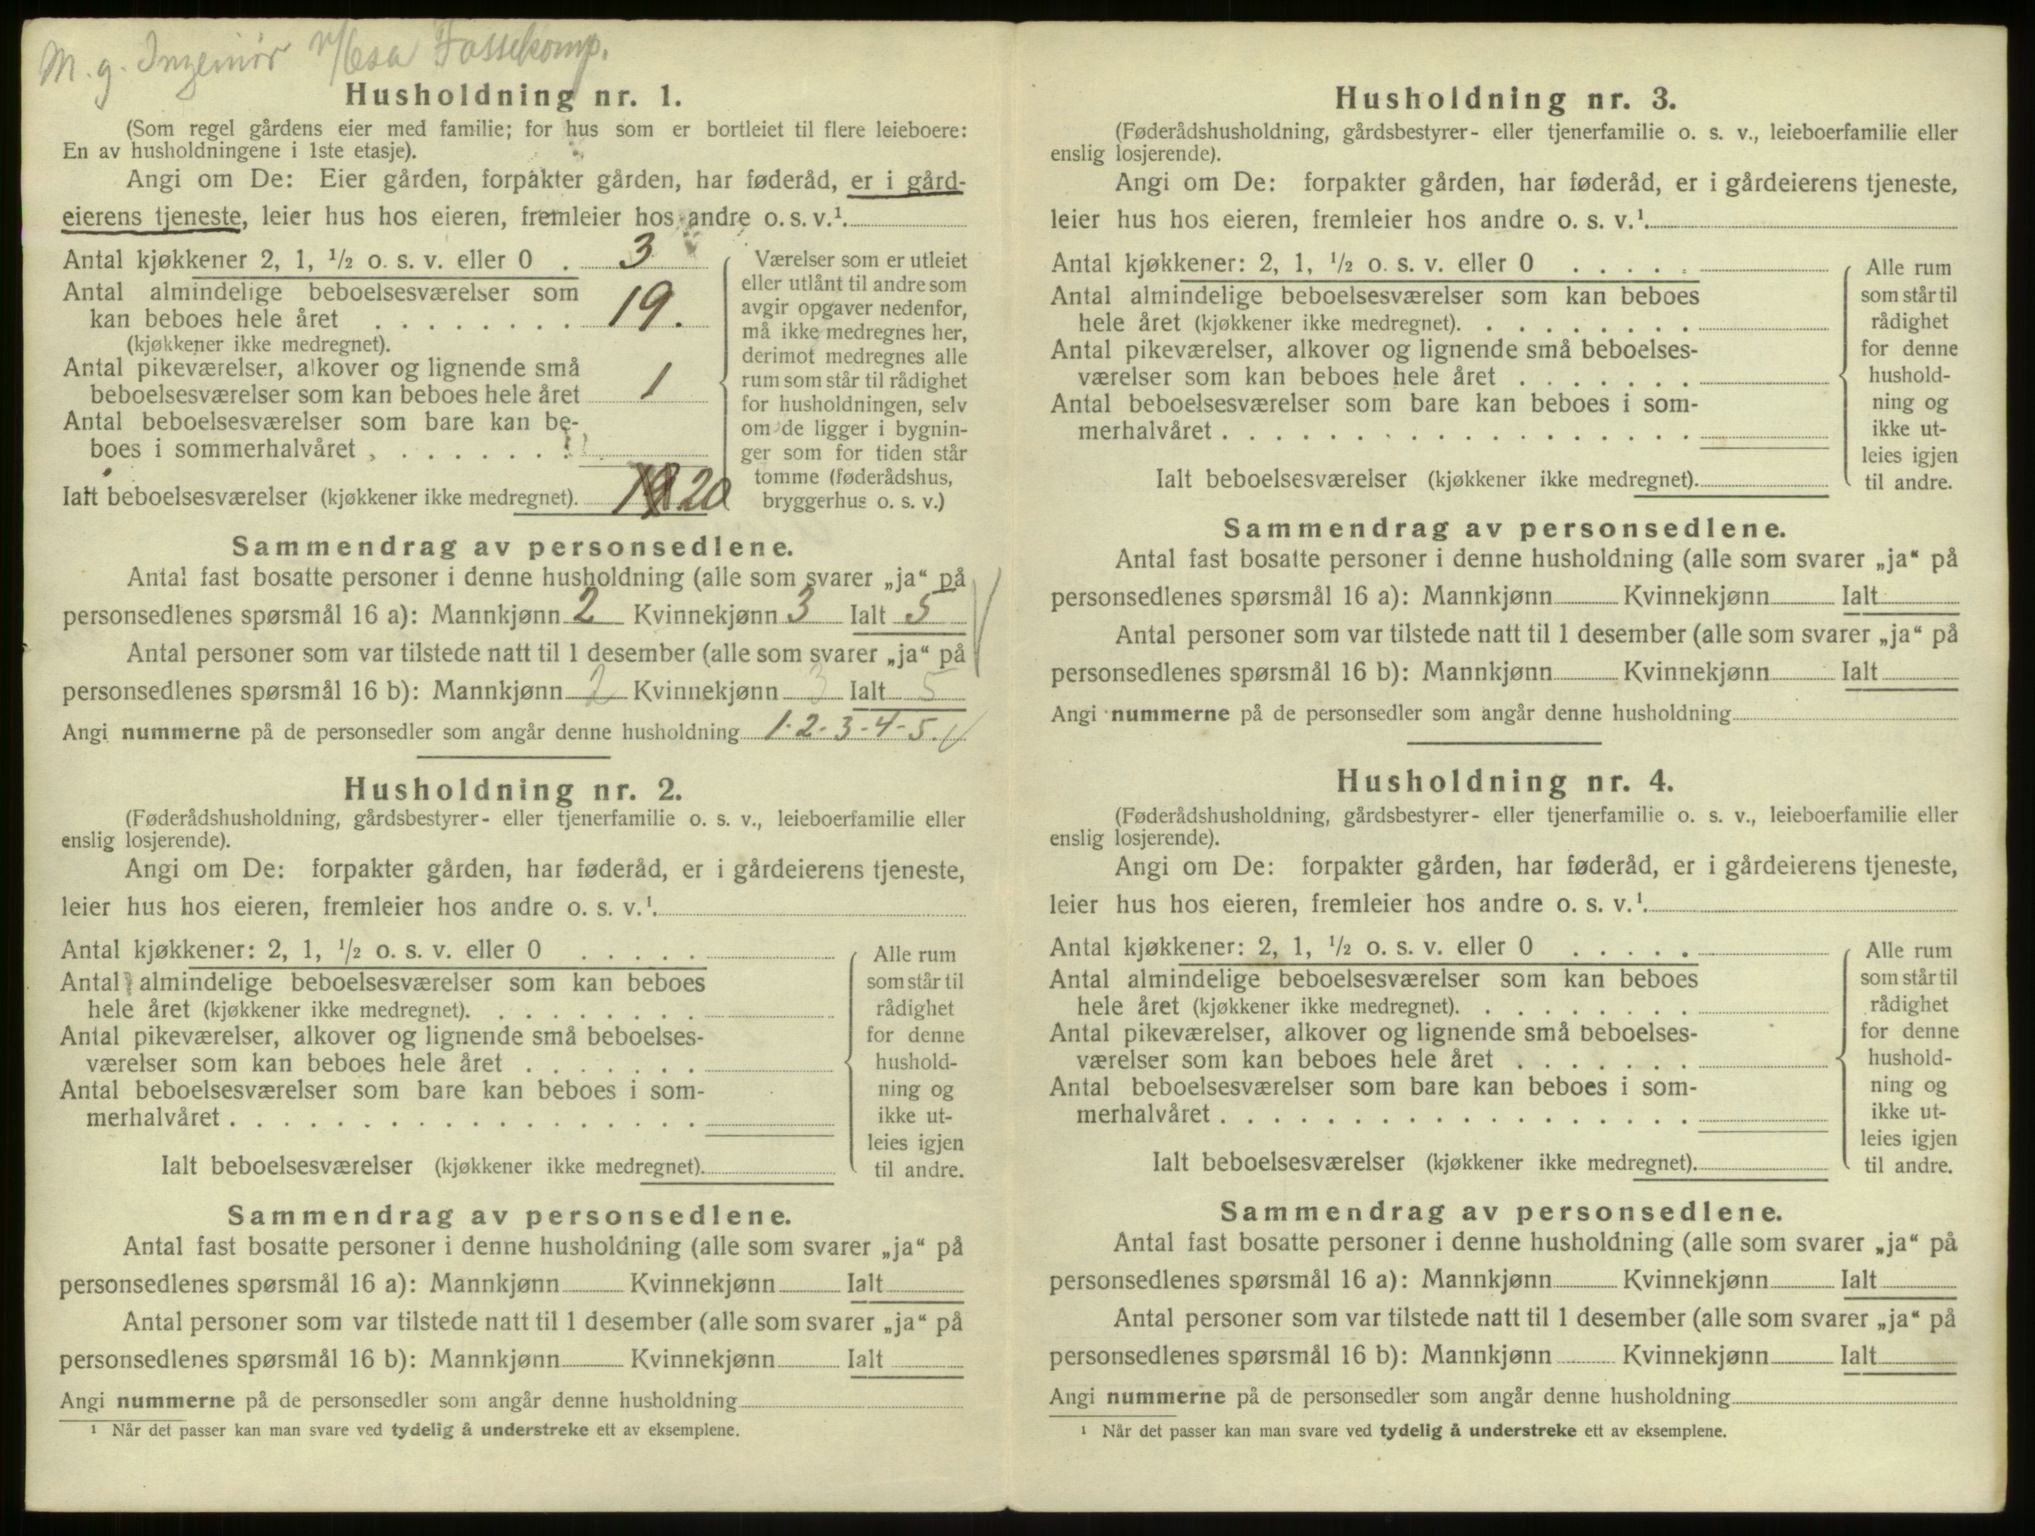 M. g. Ingeniør v/Esa Fossekomp.
Husholdning nr. 1.
(Som regel gårdens eier med familie; for hus som er bortleiet til flere leieboere:
En av husholdningene i 1ste etasje).
Angi om De: Eier gården, forpakter gården, har føderåd, er i gård-
eierens tjeneste, leier hus hos eieren, fremleier hos andre o. s. v.¹
Antal kjøkkener 2, 1, ½ o. s. v. eller 0 . 3
Antal almindelige beboelsesværelser som
kan beboes hele året . . . . . . . . 19.
(kjøkkener ikke medregnet).
Antal pikeværelser, alkover og lignende små
beboelsesværelser som kan beboes hele året 1
Antal beboelsesværelser som bare kan be-
boes i sommerhalvåret . . . . . . .
Ialt beboelsesværelser (kjøkkener ikke medregnet). 20
Værelser som er utleiet
eller utlånt til andre som
avgir opgaver nedenfor,
må ikke medregnes her,
derimot medregnes alle
rum som står til rådighet
for husholdningen, selv
om de ligger i bygnin-
ger som for tiden står
tomme (føderådshus,
bryggerhus o. s. v.)
Sammendrag av personsedlene.
Antal fast bosatte personer i denne husholdning (alle som svarer „ja“ på
personsedlenes spørsmål 16 a): Mannkjønn 2 Kvinnekjønn 3 Ialt 5
Antal personer som var tilstede natt til 1 desember (alle som svarer „ja“ på
personsedlenes spørsmål 16 b): Mannkjønn 2 Kvinnekjønn 3 Ialt 5
Angi nummerne på de personsedler som angår denne husholdning 1-2-3-4-5.
Husholdning nr. 2.
(Føderådshusholdning, gårdsbestyrer- eller tjenerfamilie o. s. v., leieboerfamilie eller
enslig losjerende).
Angi om De: forpakter gården, har føderåd, er i gårdeierens tjeneste,
leier hus hos eieren, fremleier hos andre o. s. v.¹
Antal kjøkkener: 2, 1, ½ o. s. v. eller 0 . . . . .
Antal almindelige beboelsesværelser som kan beboes
hele året (kjøkkener ikke medregnet). . . . . . . . .
Antal pikeværelser, alkover og lignende små beboelses-
værelser som kan beboes hele året . . . . . . .
Antal beboelsesværelser som bare kan beboes i som-
merhalvåret . . . . . . . . . . . . . . . . . .
Ialt beboelsesværelser (kjøkkener ikke medregnet).
Alle rum
som står til
rådighet
for denne
hushold-
ning og
ikke ut-
leies igjen
til andre.
Sammendrag av personsedlene.
Antal fast bosatte personer i denne husholdning (alle som svarer „ja“ på
personsedlenes spørsmål 16 a): Mannkjønn Kvinnekjønn Ialt
Antal personer som var tilstede natt til 1 desember (alle som svarer „ja“ på
personsedlenes spørsmål 16 b): Mannkjønn Kvinnekjønn Ialt
Angi nummerne på de personsedler som angår denne husholdning
¹ Når det passer kan man svare ved tydelig å understreke ett av eksemplene.
Husholdning nr. 3.
(Føderådshusholdning, gårdsbestyrer- eller tjenerfamilie o. s. v., leieboerfamilie eller
enslig losjerende).
Angi om De: forpakter gården, har føderåd, er i gårdeierens tjeneste,
leier hus hos eieren, fremleier hos andre o. s. v.¹
Antal kjøkkener: 2, 1, ½ o. s. v. eller 0 . . . . .
Antal almindelige beboelsesværelser som kan beboes
hele året (kjøkkener ikke medregnet). . . . . . . . .
Antal pikeværelser, alkover og lignende små beboelses-
værelser som kan beboes hele året . . . . . . .
Antal beboelsesværelser som bare kan beboes i som-
merhalvåret . . . . . . . . . . . . . . . . . .
Ialt beboelsesværelser (kjøkkener ikke medregnet).
Alle rum
som står til
rådighet
for denne
hushold-
ning og
ikke ut-
leies igjen
til andre.
Sammendrag av personsedlene.
Antal fast bosatte personer i denne husholdning (alle som svarer „ja“ på
personsedlenes spørsmål 16 a): Mannkjønn Kvinnekjønn Ialt
Antal personer som var tilstede natt til 1 desember (alle som svarer „ja“ på
personsedlenes spørsmål 16 b): Mannkjønn Kvinnekjønn Ialt
Angi nummerne på de personsedler som angår denne husholdning
Husholdning nr. 4.
(Føderådshusholdning, gårdsbestyrer- eller tjenerfamilie o. s. v., leieboerfamilie eller
enslig losjerende).
Angi om De: forpakter gården, har føderåd, er i gårdeierens tjeneste,
leier hus hos eieren, fremleier hos andre o. s. v.¹
Antal kjøkkener: 2, 1, ½ o. s. v. eller 0 . . . . .
Antal almindelige beboelsesværelser som kan beboes
hele året (kjøkkener ikke medregnet). . . . . . . . .
Antal pikeværelser, alkover og lignende små beboelses-
værelser som kan beboes hele året . . . . . . .
Antal beboelsesværelser som bare kan beboes i som-
merhalvåret . . . . . . . . . . . . . . . . . .
Ialt beboelsesværelser (kjøkkener ikke medregnet).
Alle rum
som står til
rådighet
for denne
hushold-
ning og
ikke ut-
leies igjen
til andre.
Sammendrag av personsedlene.
Antal fast bosatte personer i denne husholdning (alle som svarer „ja“ på
personsedlenes spørsmål 16 a): Mannkjønn Kvinnekjønn Ialt
Antal personer som var tilstede natt til 1 desember (alle som svarer „ja“ på
personsedlenes spørsmål 16 b): Mannkjønn Kvinnekjønn Ialt
Angi nummerne på de personsedler som angår denne husholdning
¹ Når det passer kan man svare ved tydelig å understreke ett av eksemplene.